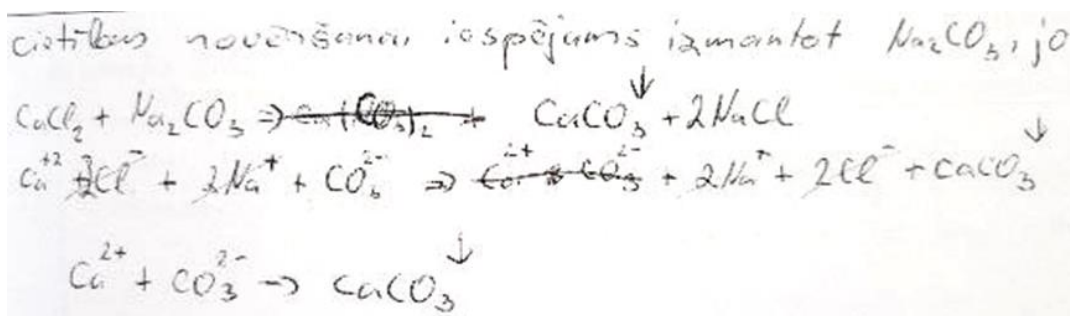 cietības novēršanai iespējams izmantot Na₂CO₃, jo
CaCl₂ + Na₂CO₃ ⇒ CaCO₃↓ + 2NaCl
Ca⁺² 2Cl⁻ + 2Na⁺ + CO₃²⁻ ⇒ + 2Na⁺ + 2Cl⁻ + CaCO₃↓
Ca²⁺ + CO₃²⁻ → CaCO₃↓